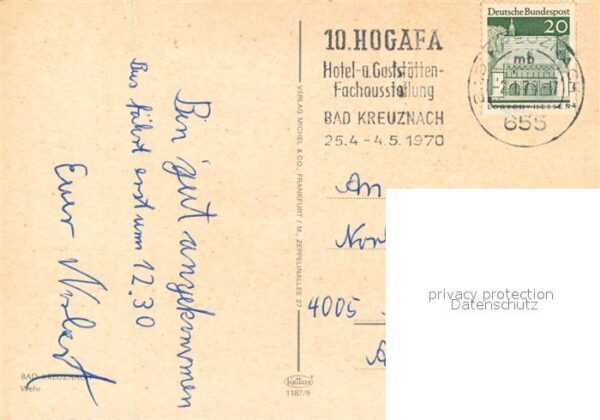 Bin gut angekommen
Bus fährt erst um 12.30
Euer Norbert
BAD KREUZNACH
Wehr
VERLAG MICHEL & CO., FRANKFURT / M., ZEPPELINALLEE 27
KRÜGER
1187/9
10. HOGAFA
Hotel- u. Gaststätten-
Fachausstellung
BAD KREUZNACH
25.4 - 4.5.1970
Deutsche Bundespost
20
LORSCH/HESSEN
BAD KREUZNACH
mb
655
An
4005
privacy protection
Datenschutz